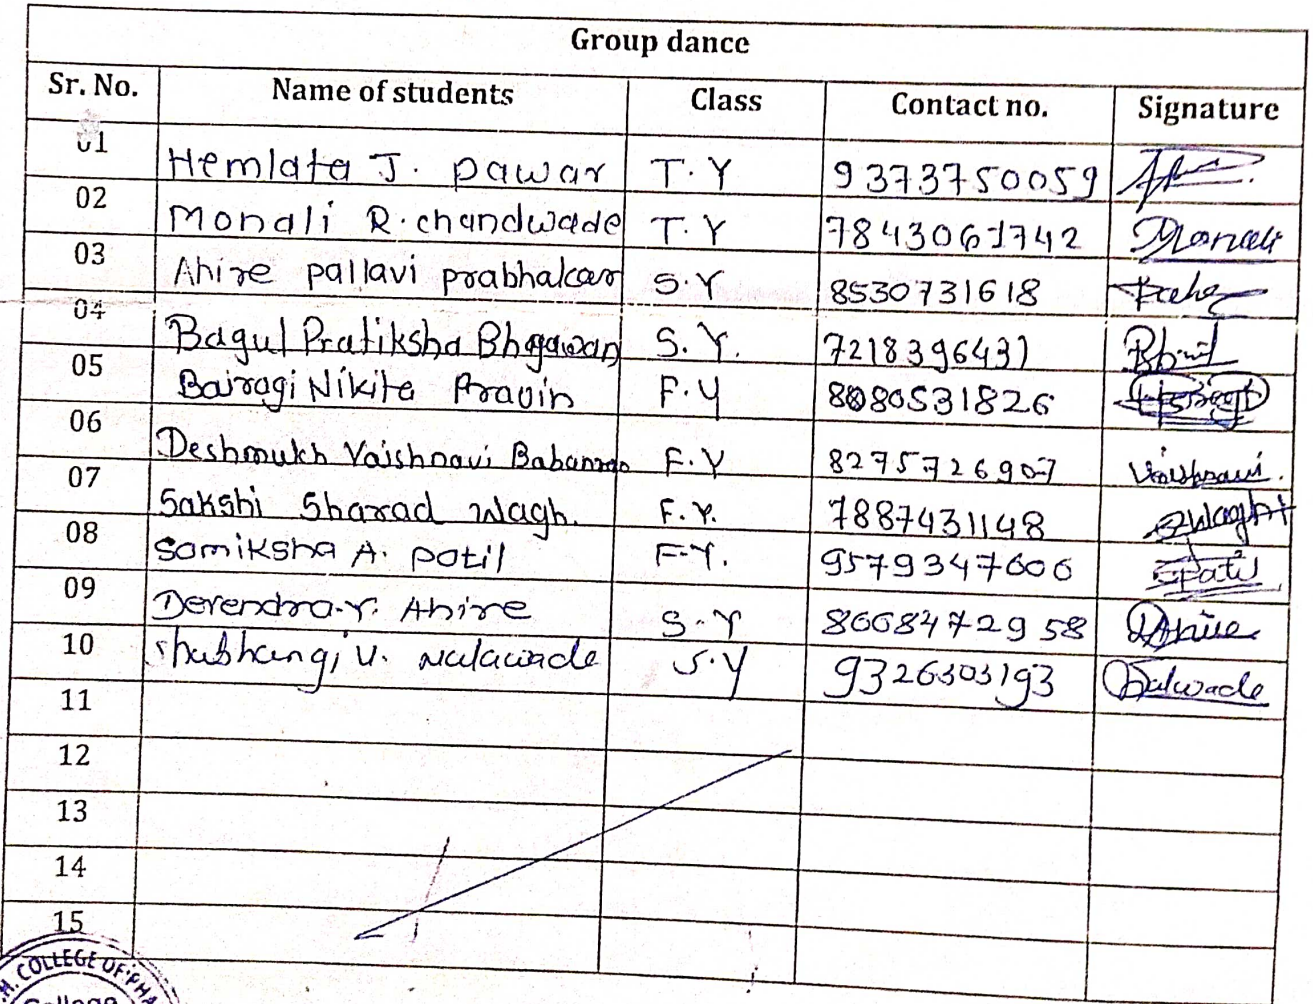 Group dance
Sr. No. Name of students Class Contact no. Signature
01 Hemlata J. pawar T.Y 9373750059
02 Monali R. chandwade T.Y 7843061742 Monali
03 Ahire pallavi prabhakar S.Y 8530731618
04 Bagul Pratiksha Bhagawan S.Y. 7218396431
05 Bairagi Nikita Pravin F.Y 8080531826
06 Deshmukh Vaishnavi Babanrao F.Y 8275726907 Vaishnavi.
07 Sakshi Sharad Wagh. F.Y. 7887431148
08 Samiksha A. patil F-Y. 9579347606 Patil
09 Devendra.Y. Ahire S.Y 8668472958 Ahire
10 Shubhangi V. Nalawade S.Y 9326303193 Nalwade
11
12
13
14
15
COLLEGE OF
College